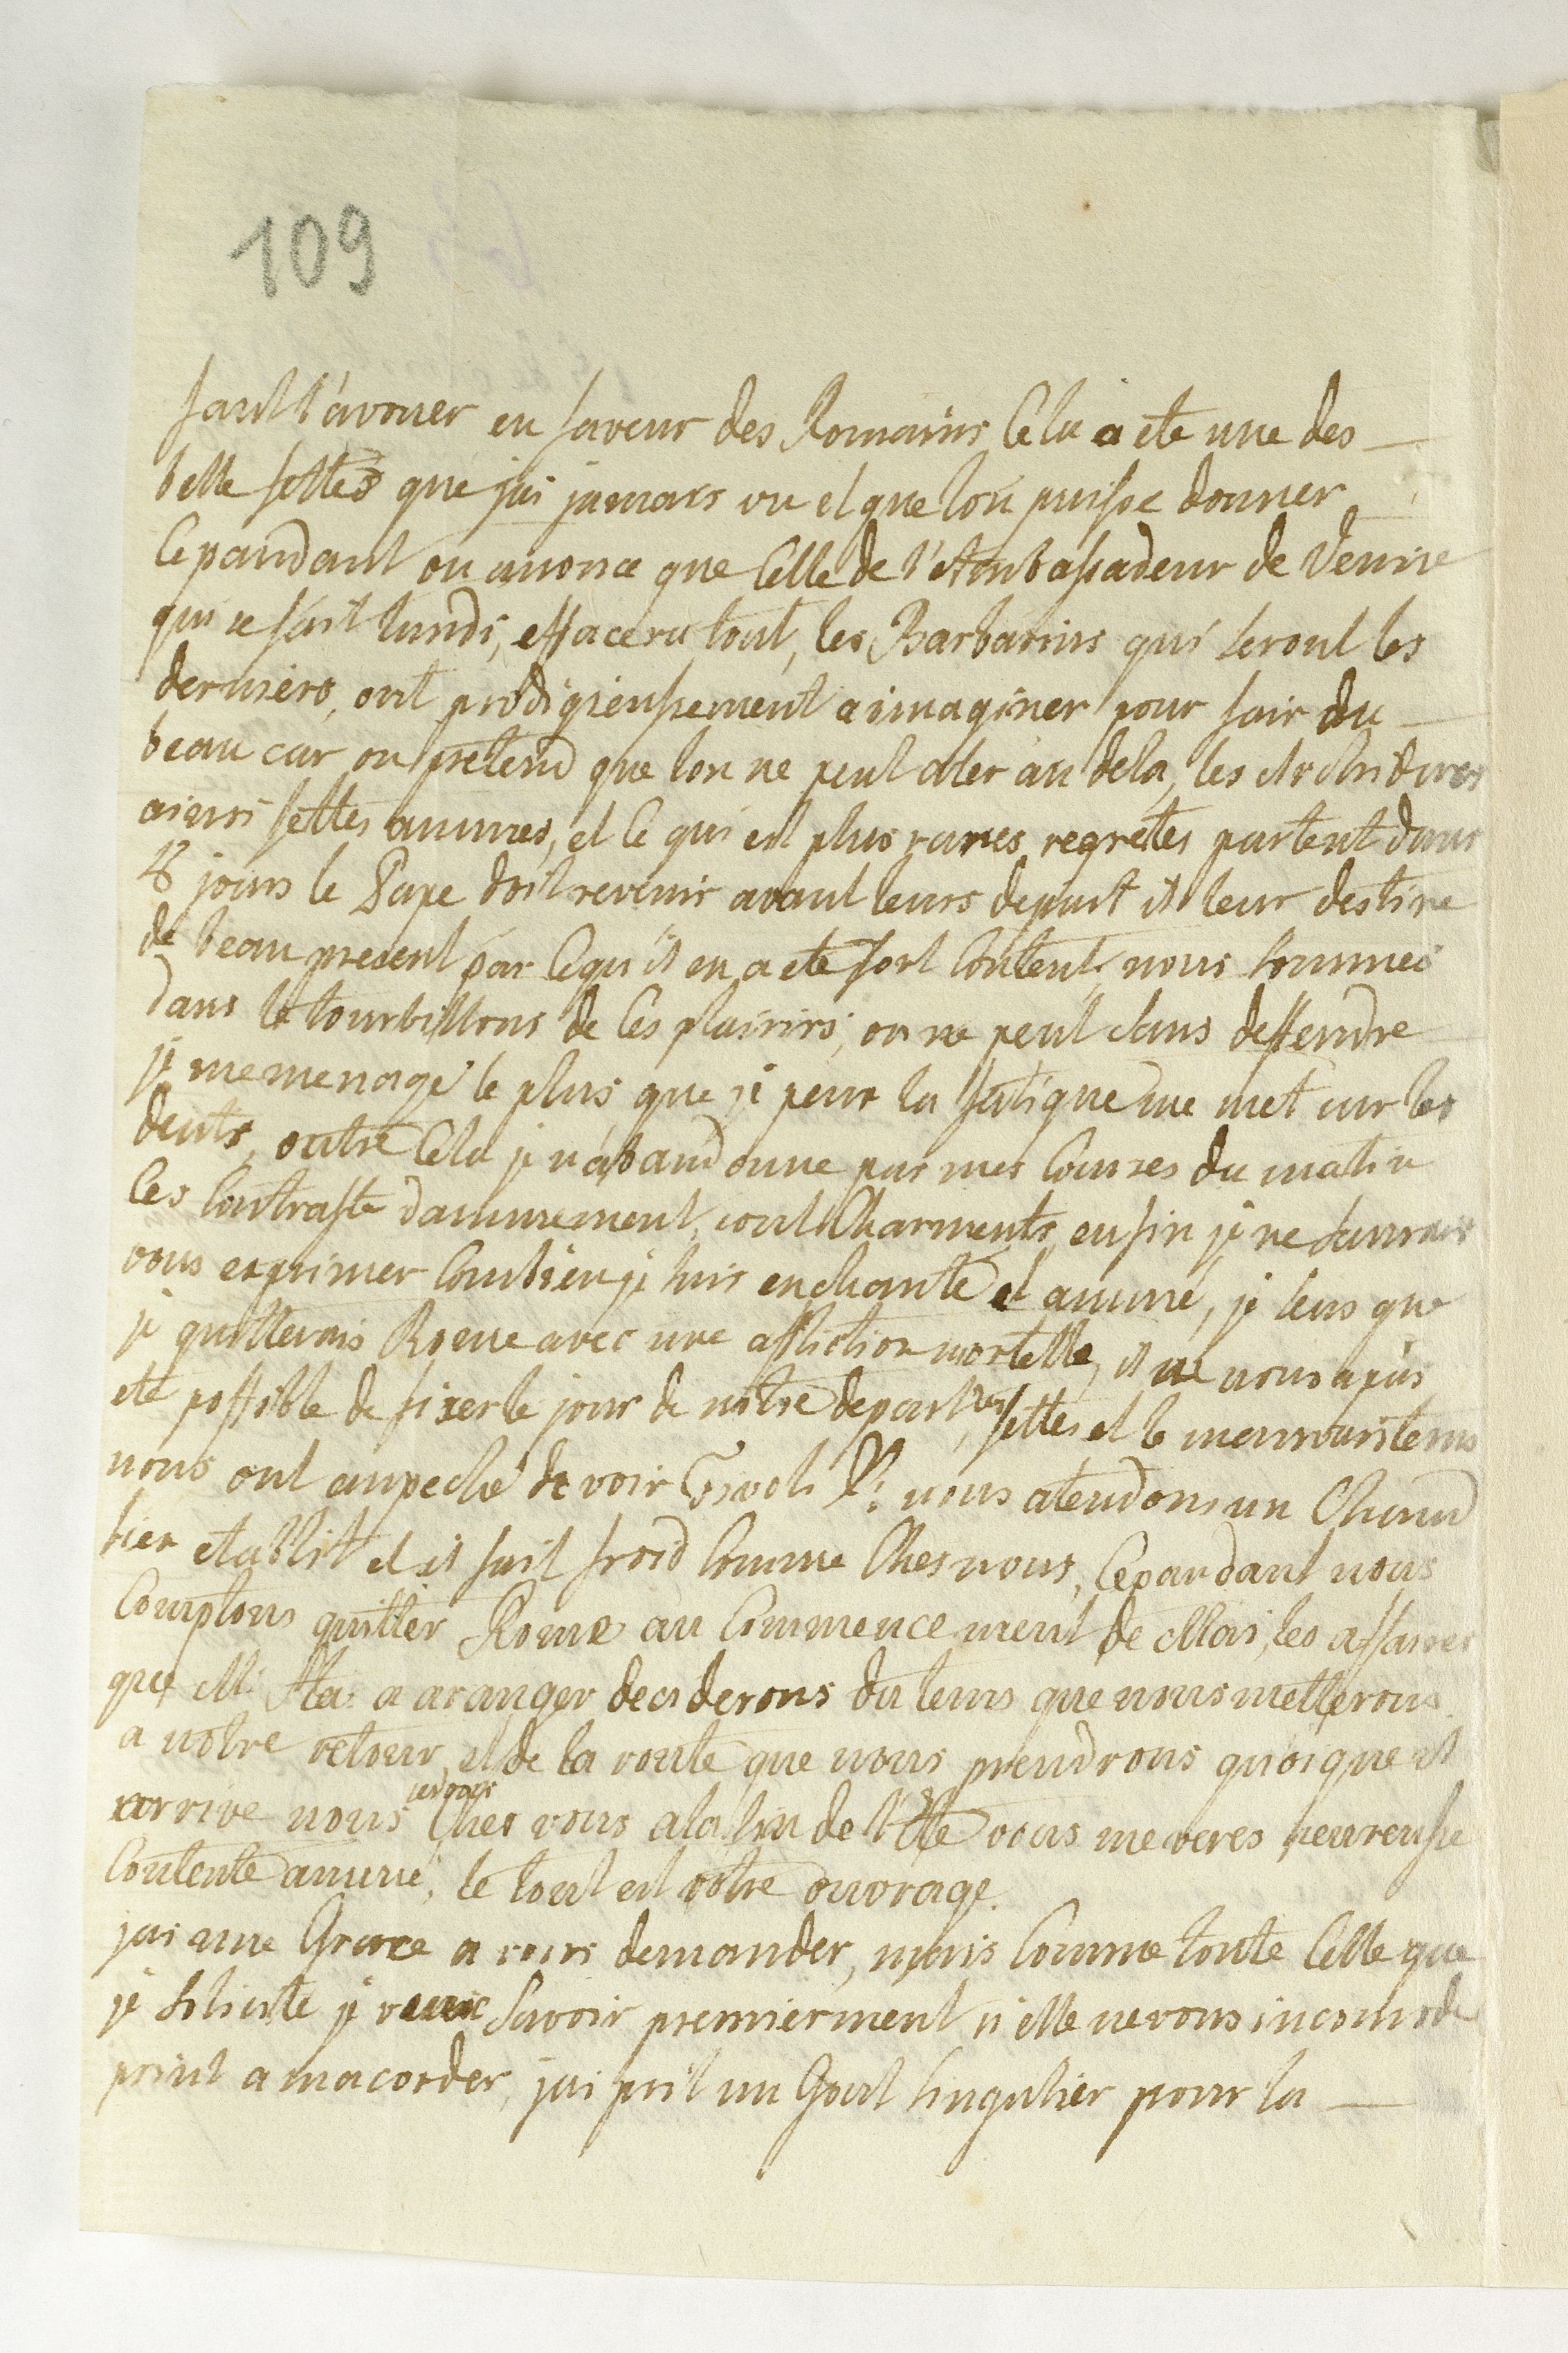 109
faut l'avouer en faveur des Romains Cela a ete une des
belle fettes que jai jamais vu et que lon puisse donner
Cepandant on anonce que Celle de l'Ambassadeur de Venise
qui se fait lundi, effacera tout, les Barbarins qui seront les
derniers, ont prodigieusement a imaginer pour fair du
beau car on pretend que lon ne peut aler au dela, les Archiducs
ainsi fettes amuses, et ce qui est plus rares regretes partent dans
8 jours le Pape doit revenir avant leurs depart il leur destine
de beau present par cequ'il en a ete fort Content, nous sommes
dans le tourbillons de Ces plaisirs, on ne peut sans deffendre
je me menage le plus que je peux la fatique me met sur les
dents, outre Cela je n'abandonne pas mes Courses du matin
Ces Contraste d'amusement, sont Charments, enfin je ne saurais
vous exprimer Combien je suis enchanté et amusé, je sens que
je quitterais Rome avec une affliction mortelle, il ne nous a pas
ete possible de fixer le jour de notre depart, les fettes et le mauvaistems
nous ont anpeché de voir Tivoli nous atendons un Chaud
bien etablit et it fait froid Comme Ches nous, Cepandant nous
Comptons quitter Rome au Commencement de Mai, les affaires
que M: a aranger deciderons du tems que nous metterons
a notre retour, et de la route que nous prendrons quoique il
arrive nous serons Ches vous a la fin de l'Eté vous me veres heureuse
Contente amusé, le tout est votre ouvrage.
jai une Grace a vous demander, mais Comme toute Celle que
je solicite je veux Savoir premierment si elle ne vous incomode
point a macorder, jai prit un Gout singulier pour la